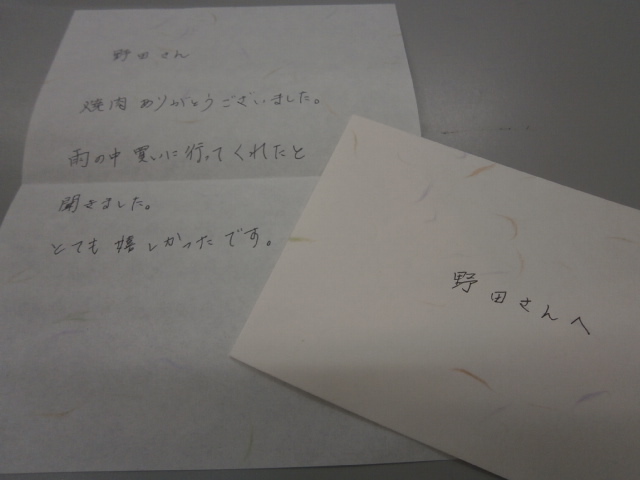 野田さん
焼肉ありがとうございました。
雨の中買いに行ってくれたと
聞きました。
とても嬉しかったです。
野田さんへ